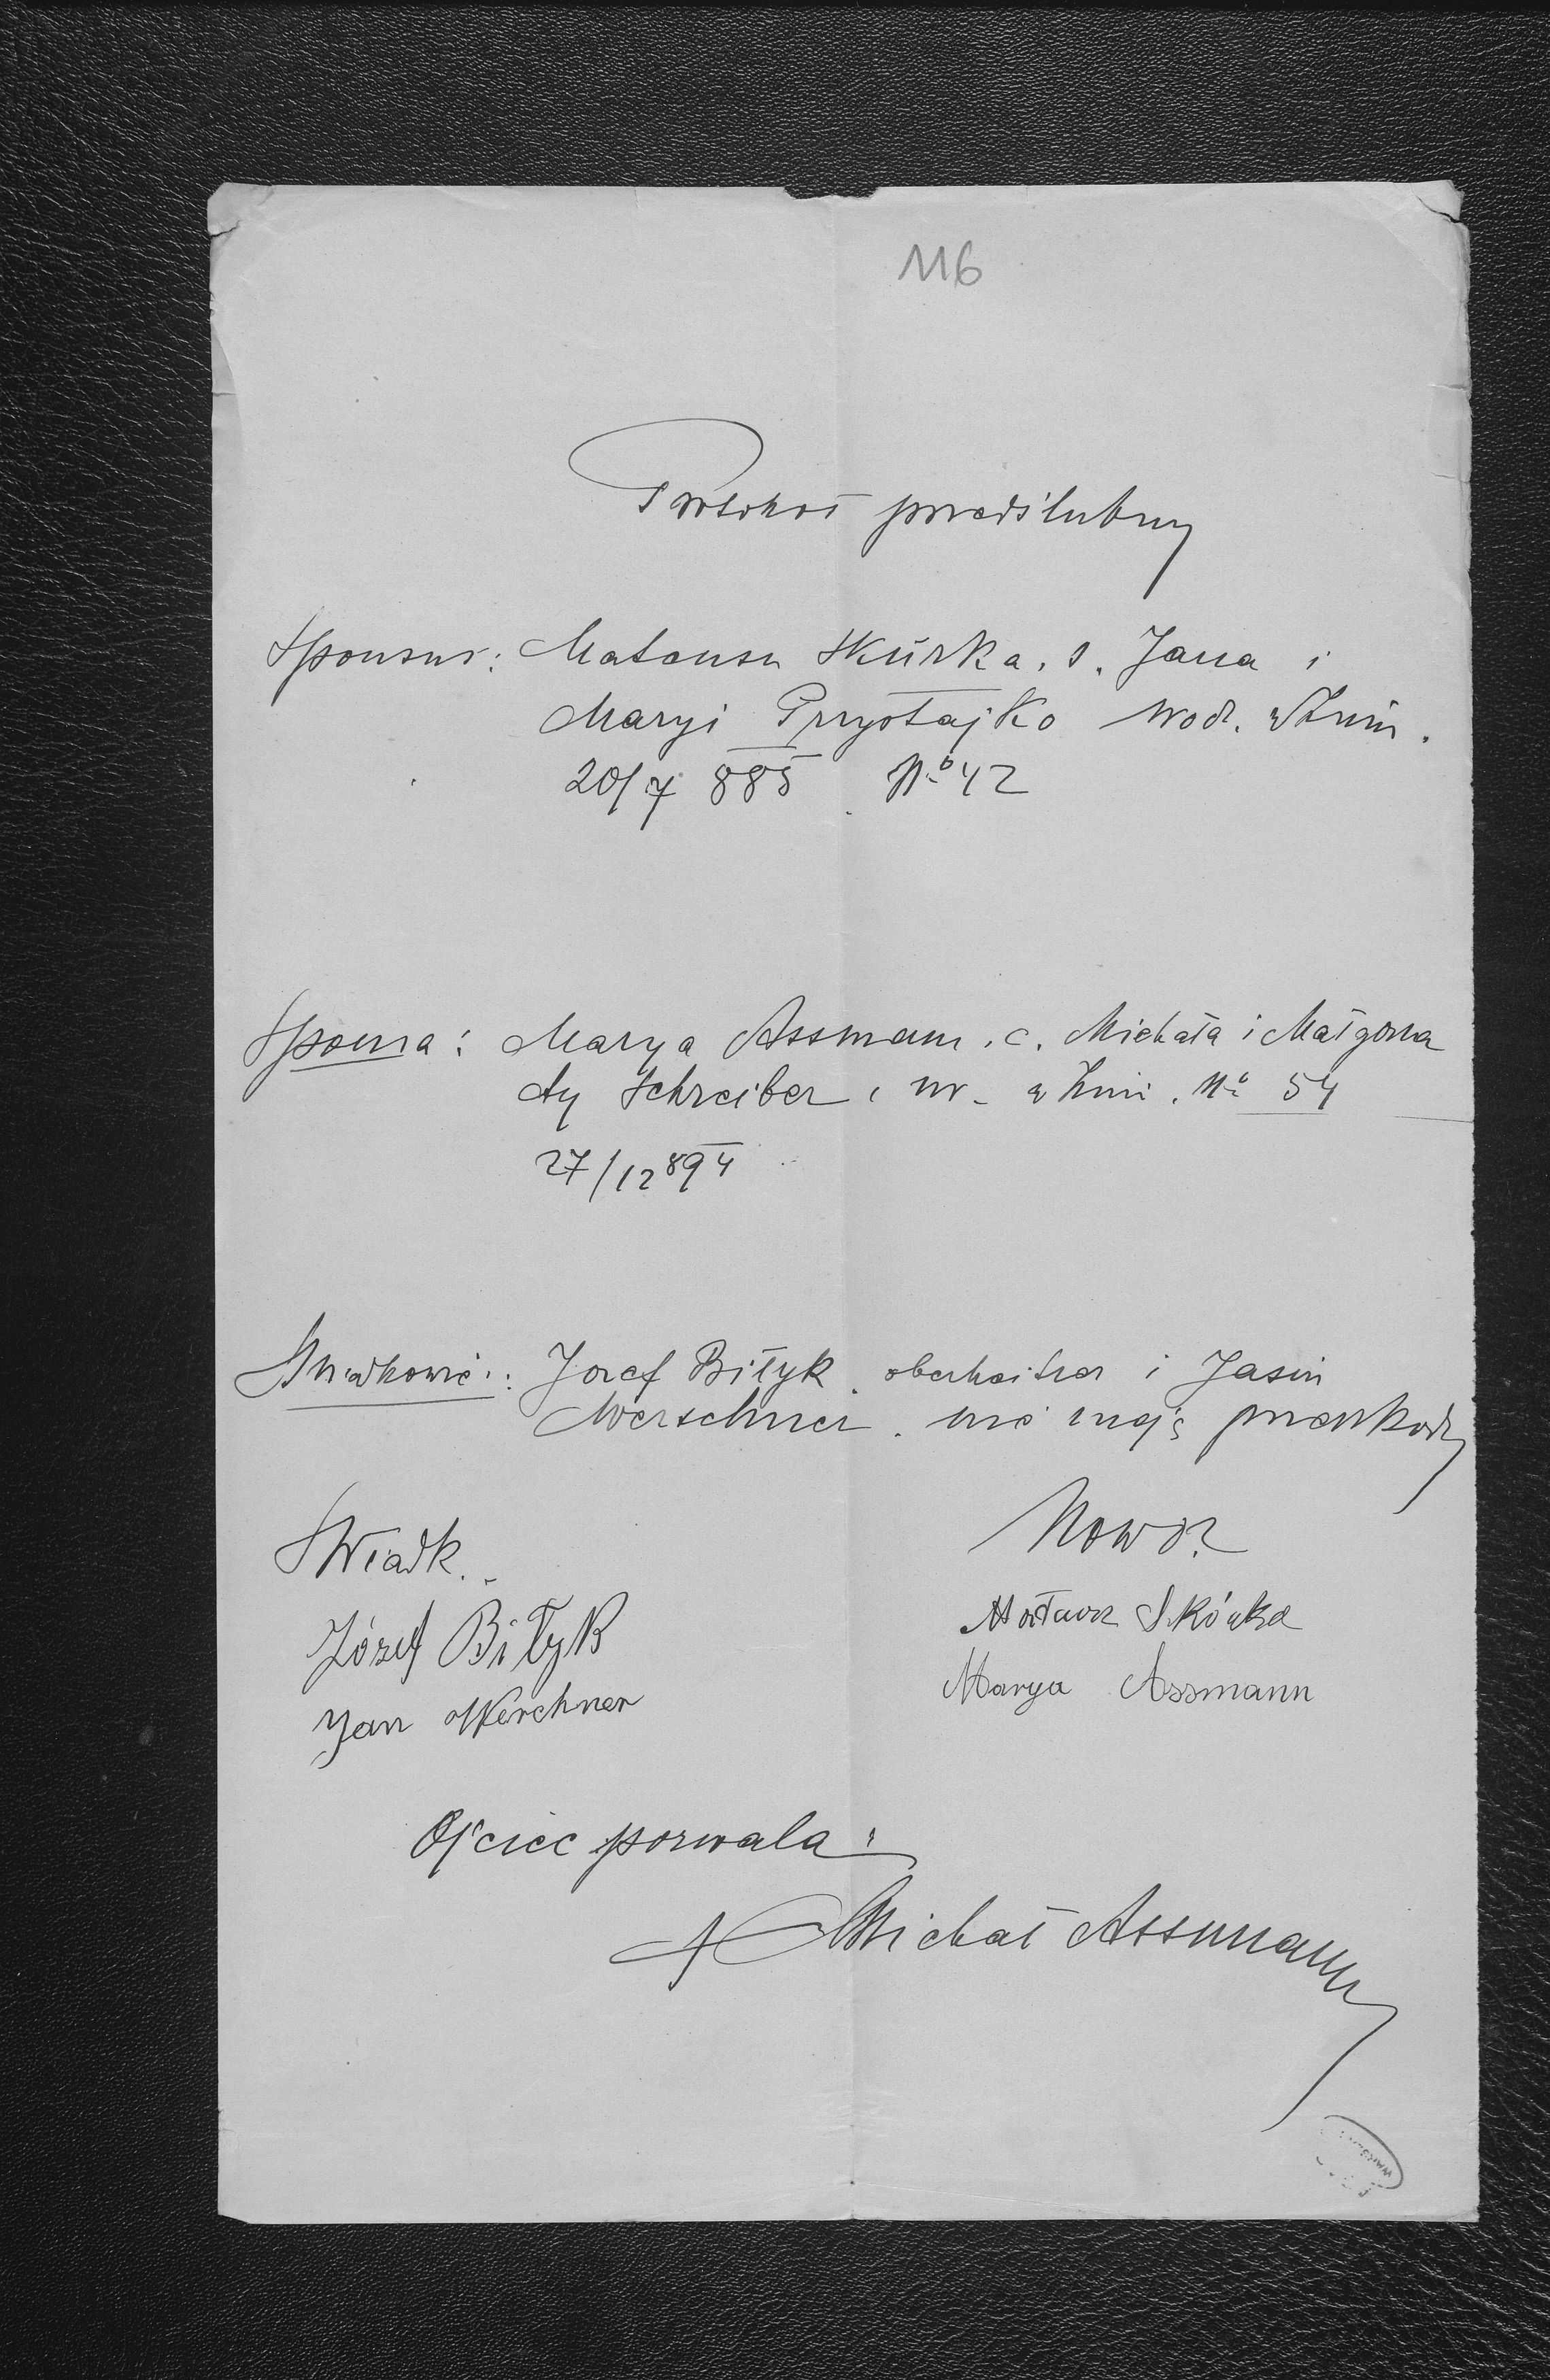 116
Protokół przedślubny
Sponsus: Mateusz Skürka. s. Jana i
Maryi Przystajko urodz. w Żnin.
20/7 885 No 42
Sponsa: Marya Assmann. c. Michała i Małgorza
ty Schreiber, ur. w Żnin. No 54
27/12 894
Świadkowie: Józef Biłyk oberheitzer i Jasiu
Werschner. nie mają przeszkody
Świadk.
Józef Biłyk
Jan Werchner
Nowoż.
Skórka
Marya Assmann
Ojciec pozwala:
Michał Assmann